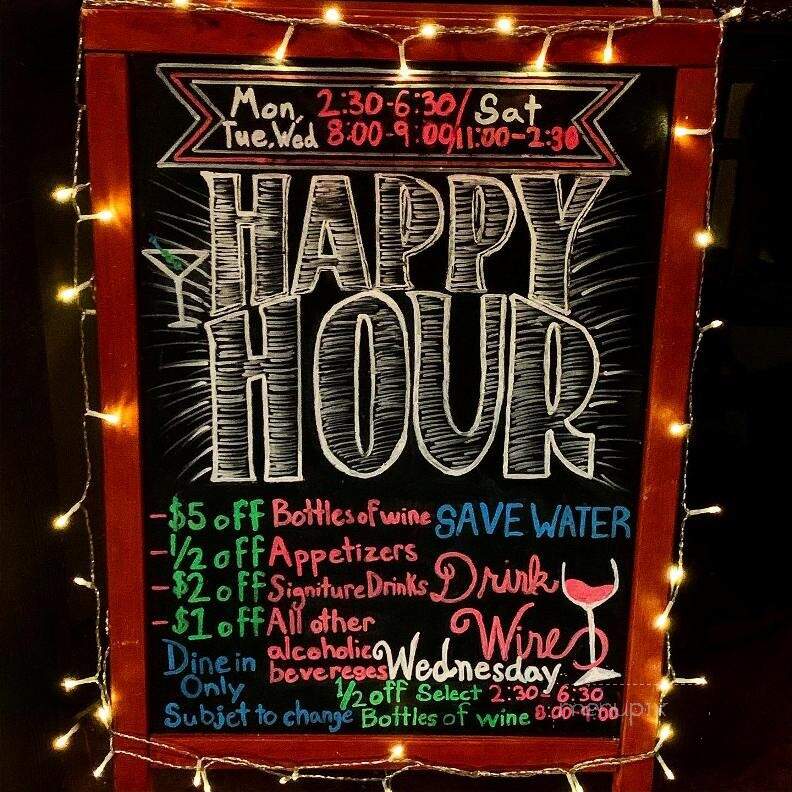 Mon, 2:30-6:30/ Sat
Tue, Wed 8:00-9:00/11:00-2:30
HAPPY
HOUR
-$5 off Bottles of wine
-1/2 off Appetizers
-$2 off Signiture Drinks
-$1 off All other
alcoholic
bevereges
Dine in
Only
Subjet to change
SAVE WATER
Drink
Wine
Wednesday
1/2 off Select 2:30-6:30
Bottles of wine 8:00-9:00
menupix